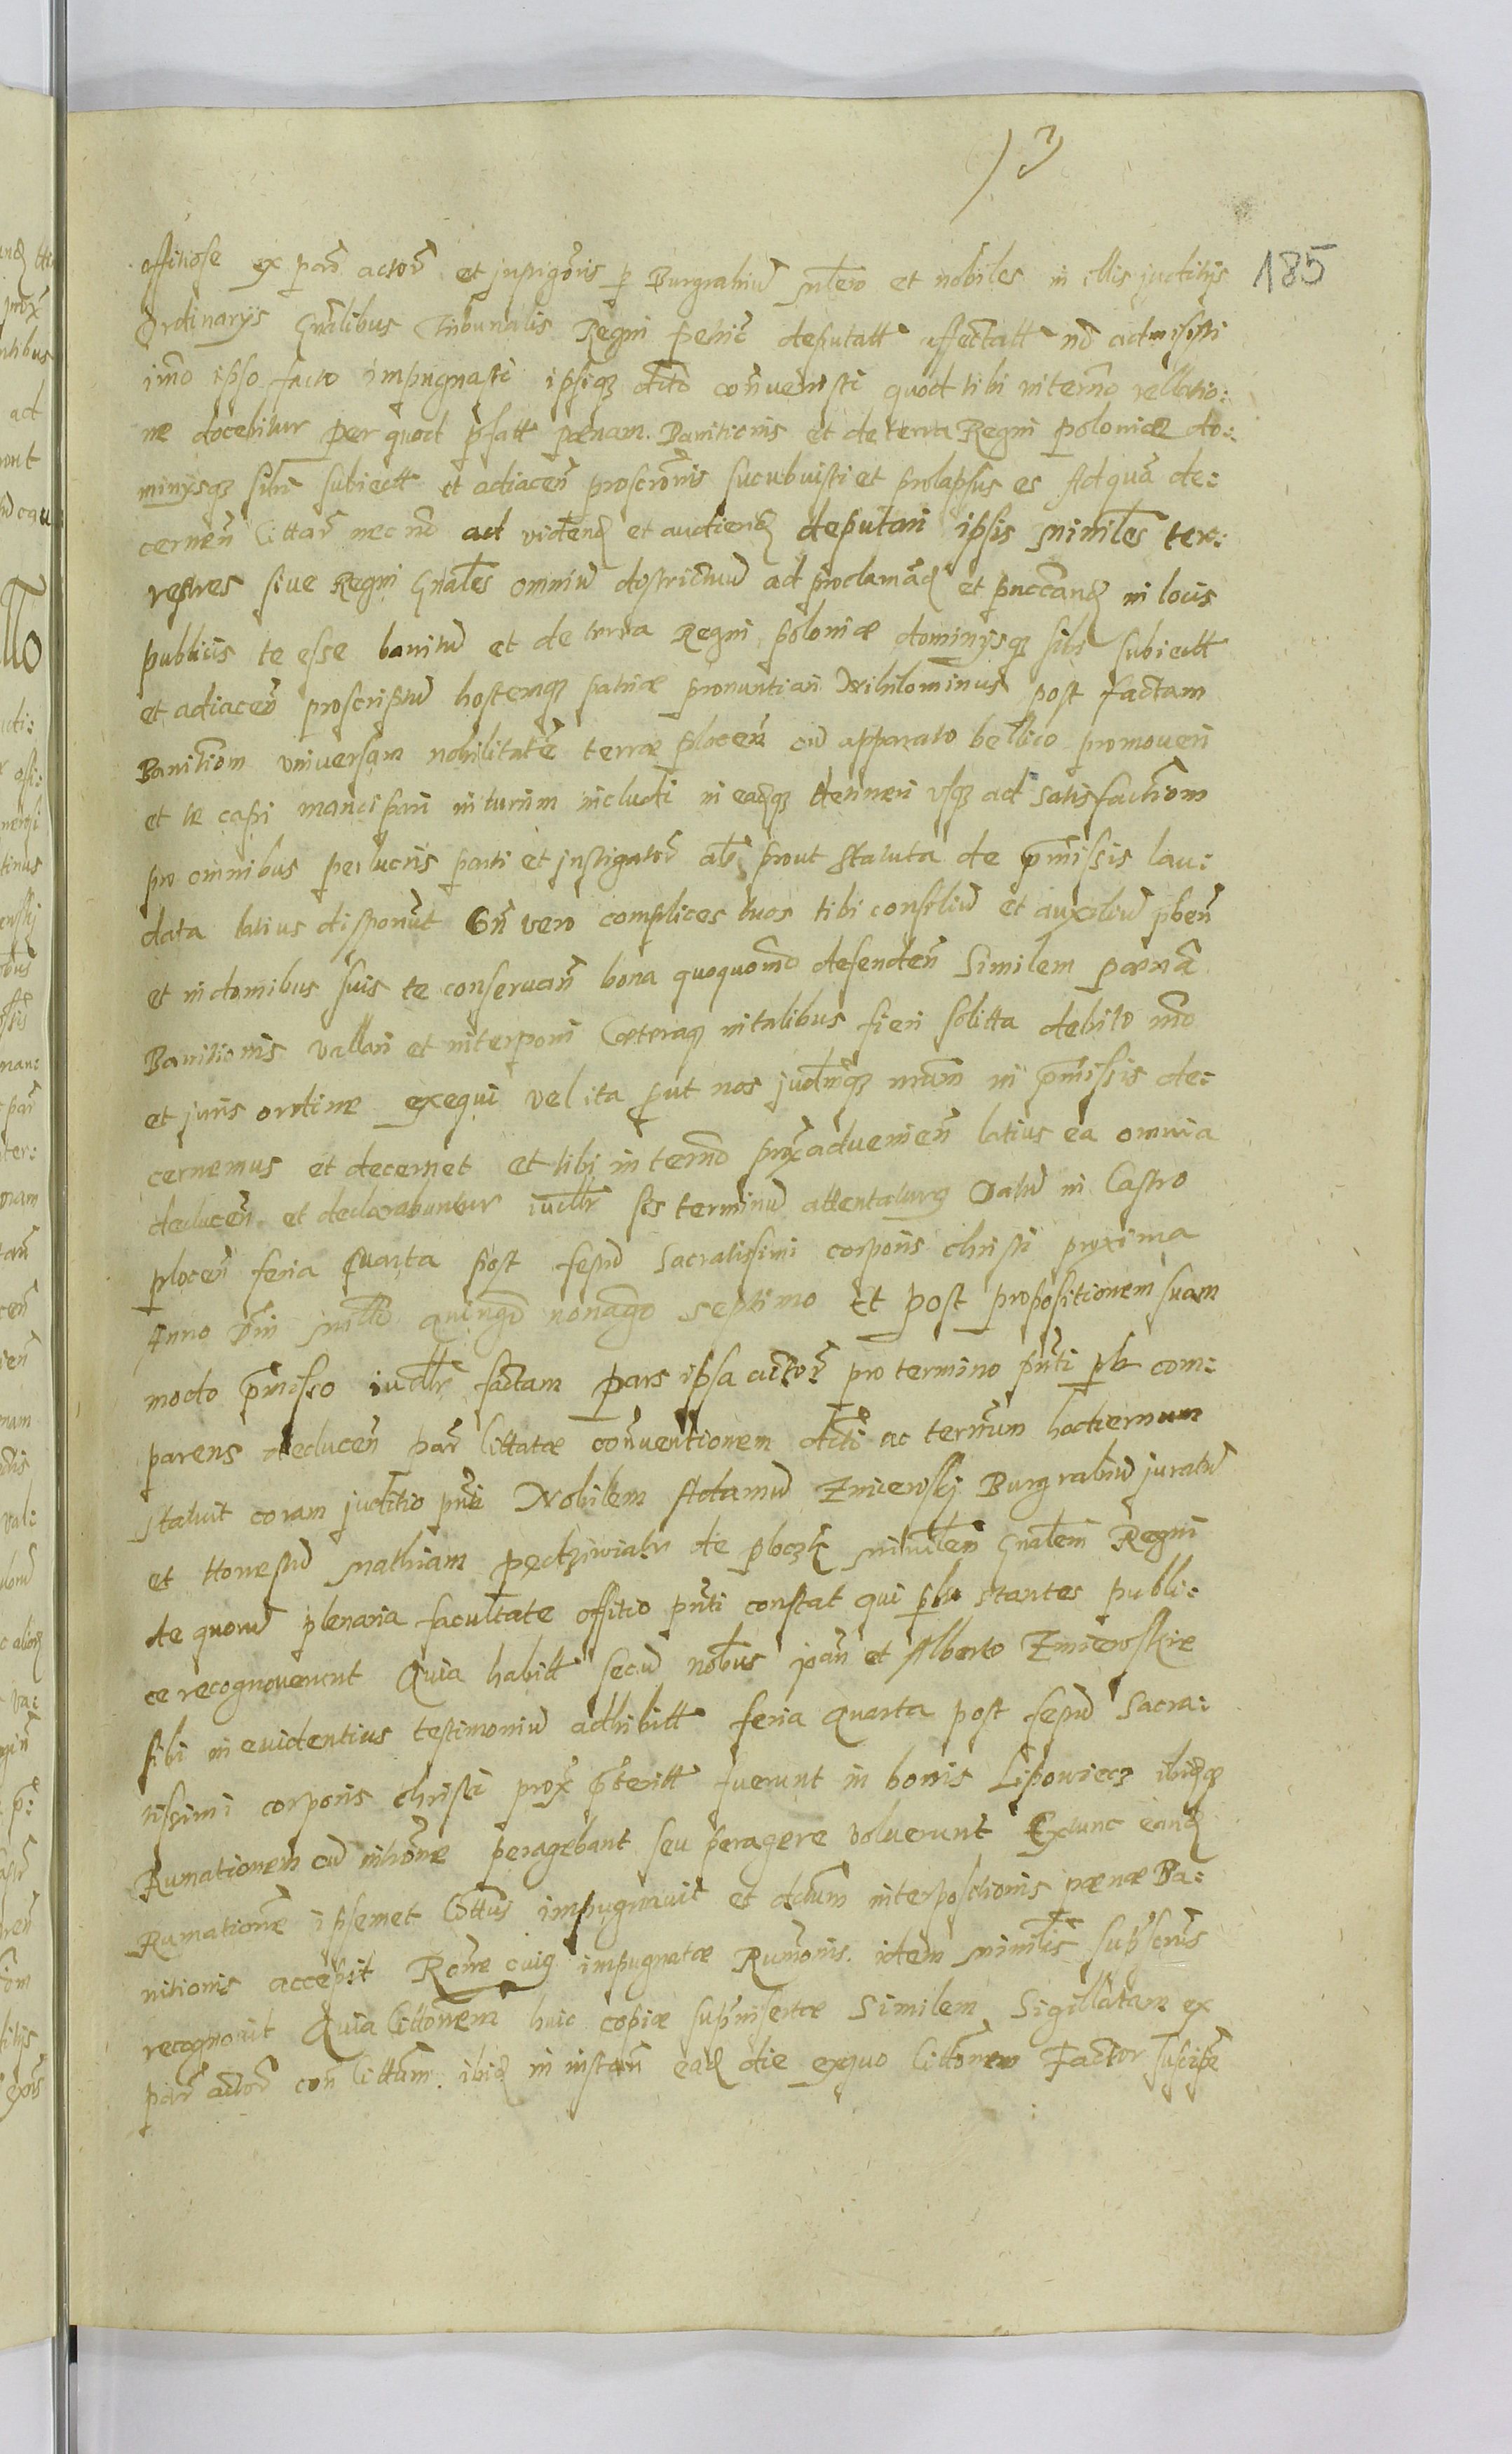 13
185
offitiose ex par actor et instigoris p Burgrabiu mlero et nobiles in illis juditijs
Ordinarijs Gnalibus Tribunalis Regni petric deputatt affectatt no admisisti
imo ipso facto impugnasti ipsiqz dcto convenisti quod tibi in termo rellatio:
ne docebitur per quod pfatt pœnam Banitionis et de terra Regni poloniæ do:
minijsqz sibi subiectt et adiacen proscronis sucubuisti et prolapsus es Ad qua de:
cernen littar nec no ad videnz et audienz deputari ipsis miniles ter:
restres sive Regni Gnales omniu districtuu ad proclamadz et puccandz in locis
publicis te esse banitu et de terra Regni poloniæ dominijsqz sibi subiectt
et adiacen proscriptu hostemqz patriæ pronuntiari Nihilominus post factam
Banitiom universam nobilitate terræ plocen cu apparato bellico promoveri
et te capi mancipari in turim includi in eaqz detineri vsqz ad satisfactiom
pro omnibus perlucris parti et instigator ab prout statuta de pmissis lau:
data latius disponut Oñ vero complices tuos tibi consiliu et auxiliu pben
et in domibus suis te conservan bona quoquomo defenden similem pœna
Banitionis vallari et interponi Cœteraqz in talibus fieri solitta debito mo
et juris ordine exequi vel ita put nos judmqz nrum in pmissis de:
cernemus et decernet et tibi in termo prox advenien latius ea omnia
deducen et declarabuntur iudlr sis terminu attentaturus Datu in Castro
plocen feria Quarta post festu Sacratissimi corporis christi proxima
Anno Dni millo quingo nonago septimo Et post propositionem suam
modo pmisso iudlr factam pars ipsa actor pro termino pnti plr com:
parens deducen par littatæ conventionem dcti ac terminum hodiernum
statuit coram juditio pnti Nobilem Adamu Zmiewskj Burgrabiu juratu
et Honestu mathiam pedziwiatr de ploczk minilem Gnalem Regni
de quoru plenaria facultate offitio pnti constat qui plr stantes publi:
ce recognoverunt Quia habitt secu nobus Jan et Alberto Zmiewskie
sibi in evidentius testimoniu adhibitt feria Quarta post festu Sacra:
tissimi corporis christi prox pteritt fuerunt in bonis Lipowiecz ibiqz
Rumationem cu intrône peragebant seu peragere voluerunt Extunc eanz
Rumatione ipsemet Cittus impugnavit et dctum interpositionis pœnæ Ba:
nitionis accepit Rone cuiq impugnatæ Rumonis idem minilis supscrus
recognovit Quia Cittonem huic copiæ supinsertæ similem Sigillatam ex
par actor con littam ibiz in instan eaz die exquo Cittonem Factor suscipe